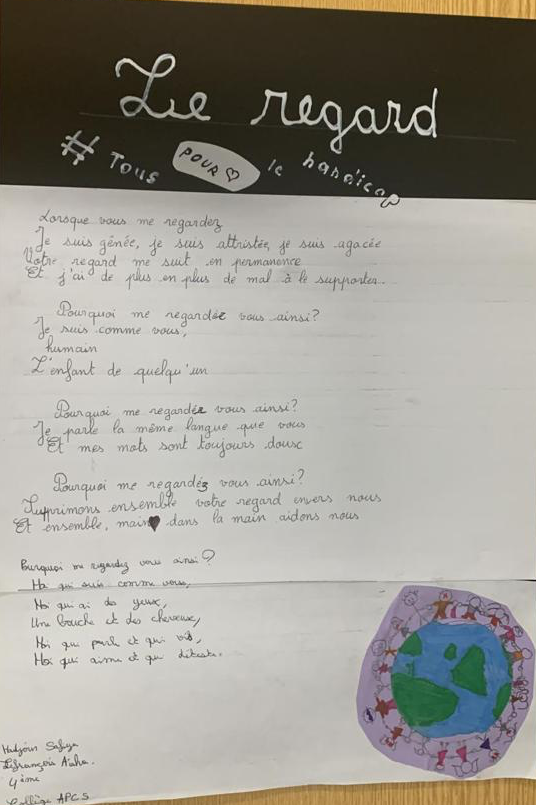 Le regard
# Tous POUR le handicap
Lorsque vous me regardez
Je suis gênée, je suis attristée, je suis agacée
Votre regard me suit en permanence
Et j'ai de plus en plus de mal à le supporter.
Pourquoi me regardée vous ainsi?
Je suis comme vous,
humain
L'enfant de quelqu'un
Pourquoi me regardée vous ainsi?
Je parle la même langue que vous
Et mes mots sont toujours doux
Pourquoi me regardés vous ainsi?
Supprimons ensemble votre regard envers nous
Et ensemble, main dans la main aidons nous
Pourquoi me regardez vous ainsi?
Moi qui suis comme vous,
Moi qui ai des yeux,
Une bouche et des cheveux,
Moi qui parle et qui vis,
Moi qui aime et qui déteste.
Lefrançois
4ième
Collège APCS